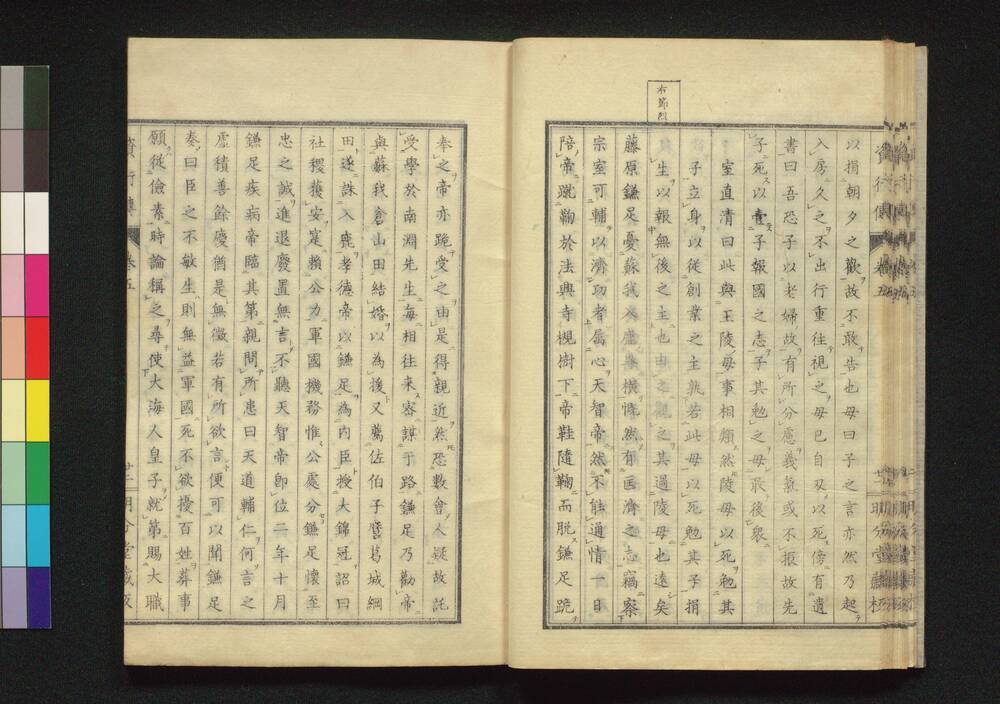 以捐朝夕之歡故不敢告也母曰子之言亦然乃起
入房久之不出行重往視之母已自刄以死傍有遺
書曰吾恐子以老婦故有所分慮義氣或不振故先
子死以壹子報國之志子其勉之母敢後衆
室直清曰此與王陵母事相類然陵母以死勉其
子立身以從創業之主孰若此母以死勉其子捐
生以報無後之主也由之觀之其過陵母也遠矣
右節烈
藤原鎌足憂蘇我入鹿慨然有匡濟之志竊察
宗室可輔以濟功者屬心天智帝然不能通情一日
陪帝蹴鞠於法興寺槻樹下帝鞋隨鞠而脱鎌足跪
奉之帝亦跪受之由是得親近然恐數會人疑故託
受學於南淵先生每相往来容謀于路鎌足乃勸帝
與蘇我倉山田結婚以為援又薦佐伯子麿葛城綱
田遂誅入鹿孝德帝以鎌足為内臣授大錦冠詔曰
社稷獲安寔賴公力軍國機務惟公處分鎌足懷至
忠之誠進退廢置無言不聽天智帝即位二年十月
鎌足疾病帝臨其第親問所患曰天道輔仁何言之
虚積善餘慶猶是無徵若有所欲言便可以聞鎌足
奏曰臣之不敏生則無益軍國死不欲擾百姓葬事
願從儉素時論稱之尋使大海人皇子就第賜大職